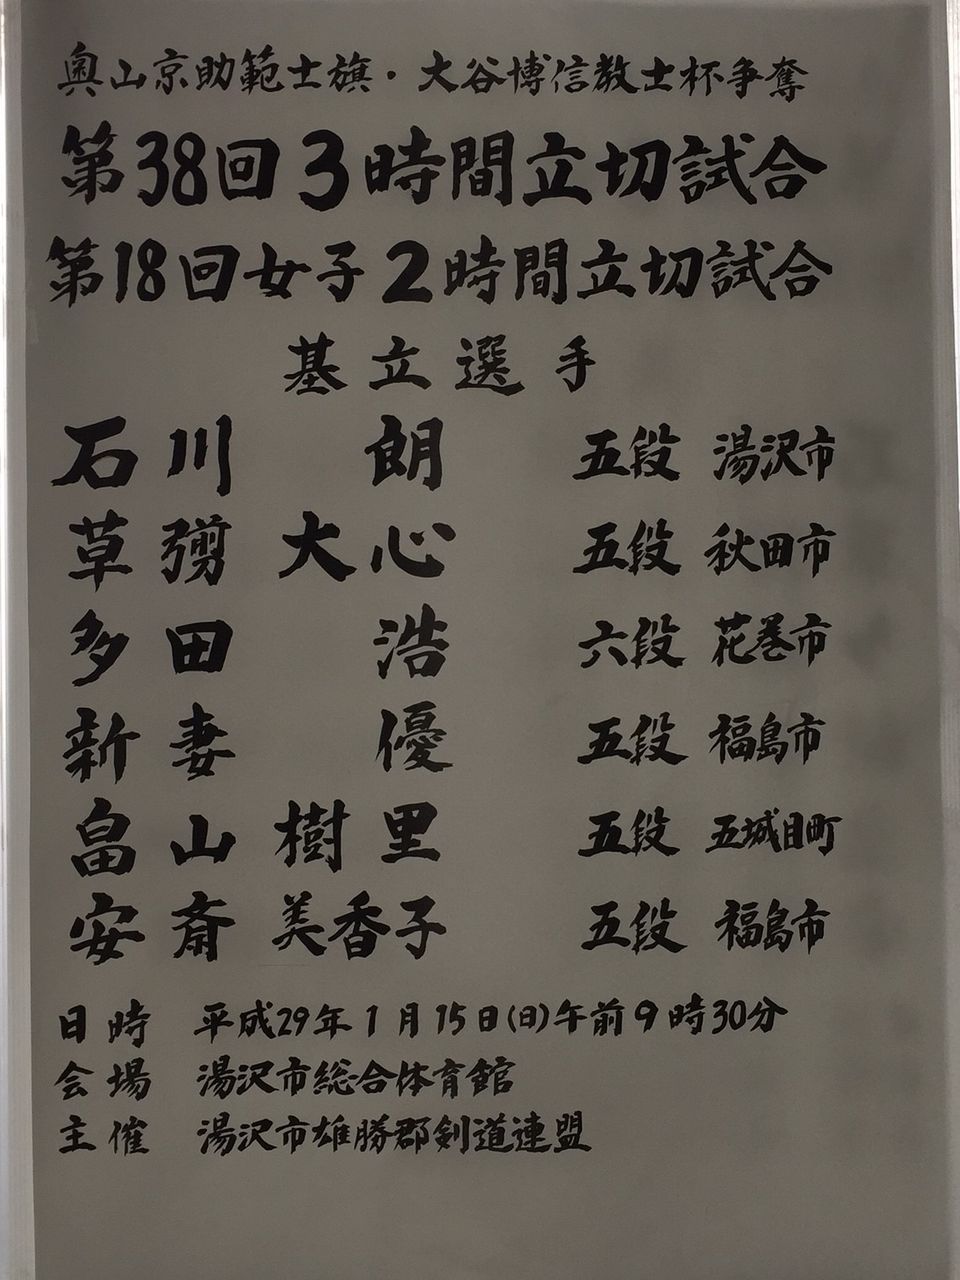 奥山京助範士旗・大谷博信教士杯争奪
第38回3時間立切試合
第18回女子2時間立切試合
基立選手
石川 朗 五段 湯沢市
草彅 大心 五段 秋田市
多田 浩 六段 花巻市
新妻 優 五段 福島市
畠山 樹里 五段 五城目町
安斎 美香子 五段 福島市
日時 平成29年1月15日(日)午前9時30分
会場 湯沢市総合体育館
主催 湯沢市雄勝郡剣道連盟